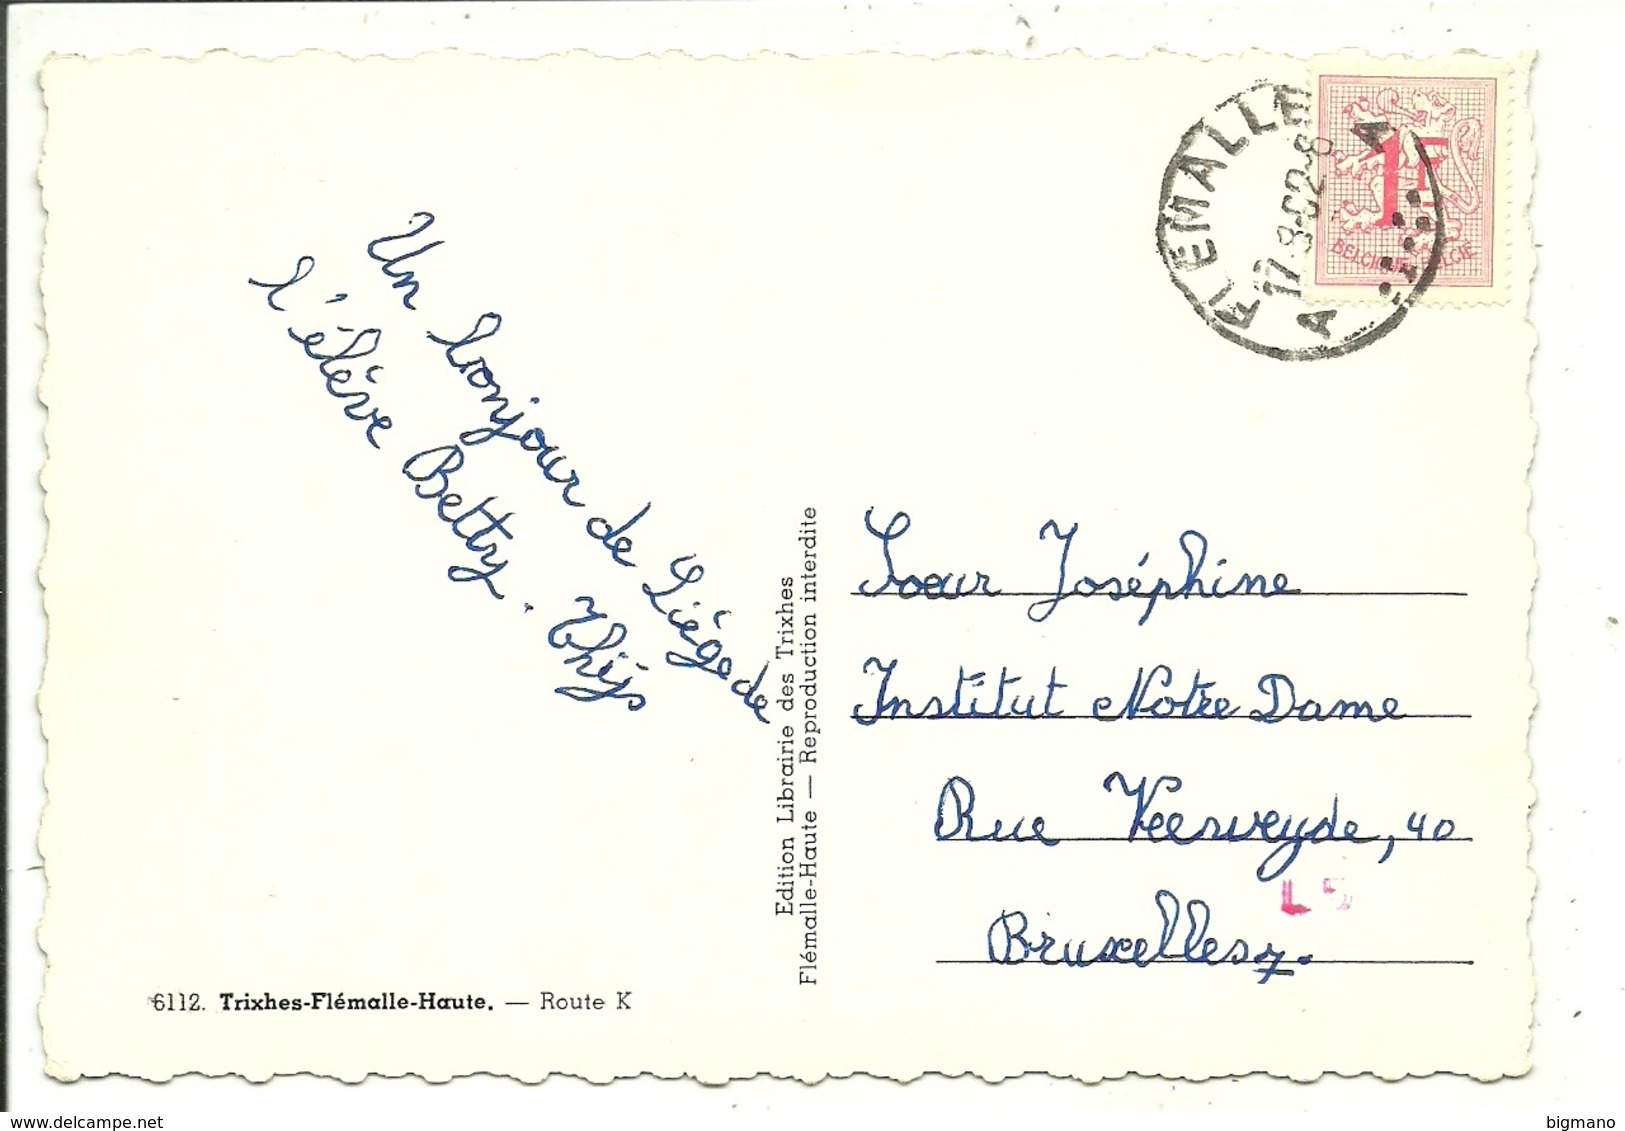 Un bonjour de Liège de
l'élève Betty. Thijs
Edition Librairie des Trixhes
Flémalle-Haute — Reproduction interdite
FLEMALLE
A A
17-8-62-8
1F
BELGIQUE-BELGIE
Soeur Joséphine
Institut Notre Dame
Rue Veerweyde, 40
Bruxelles 7.
L 5
6112. Trixhes-Flémalle-Haute. — Route K
www.delcampe.net
bigmano